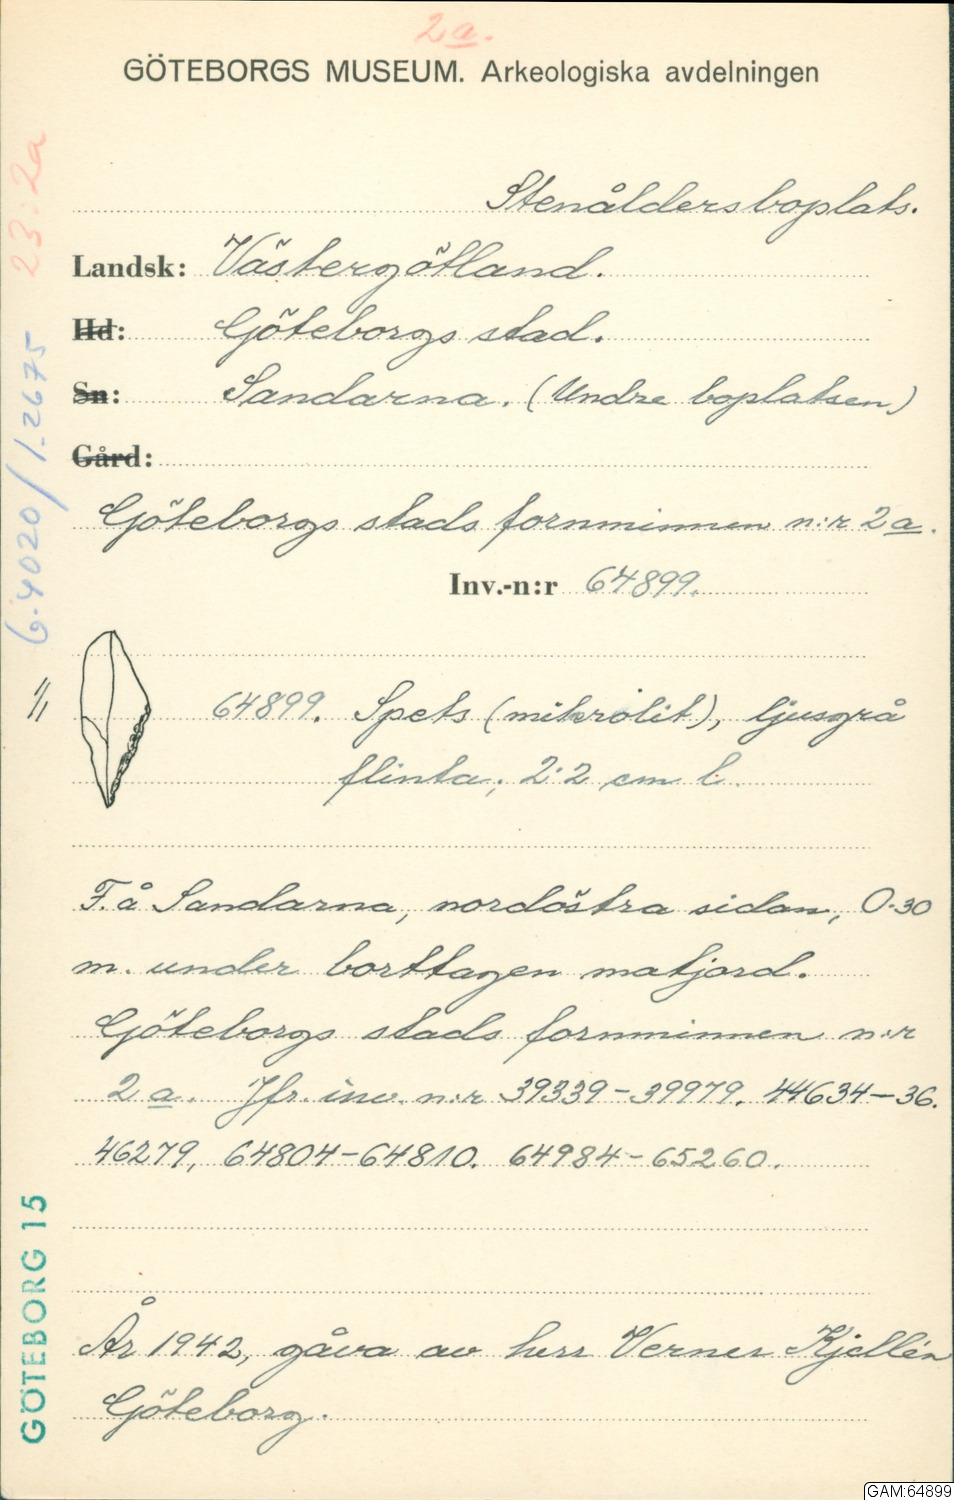 2a.
GÖTEBORGS MUSEUM. Arkeologiska avdelningen
Stenåldersboplats.
Landsk: Västergötland.
Hd: Göteborgs stad.
Sn: Sandarna. (Undre boplatsen)
Gård:
Göteborgs stads fornminnen n:r 2a.
Inv.-n:r 64899.
64899. Spets (mikrolit), ljusgrå
flinta; 2.2 cm l.
F. å Sandarna, nordöstra sidan, 0.30
m. under borttagen matjord.
Göteborgs stads fornminnen n:r
2a. Jfr. inv. n:r 39339-39979. 44634-36.
46279, 64804-64810. 64984-65260.
År 1942, gåva av herr Verner Kjellén
Göteborg.
23:2a
G.4020/1.2675
GÖTEBORG 15
GAM:64899